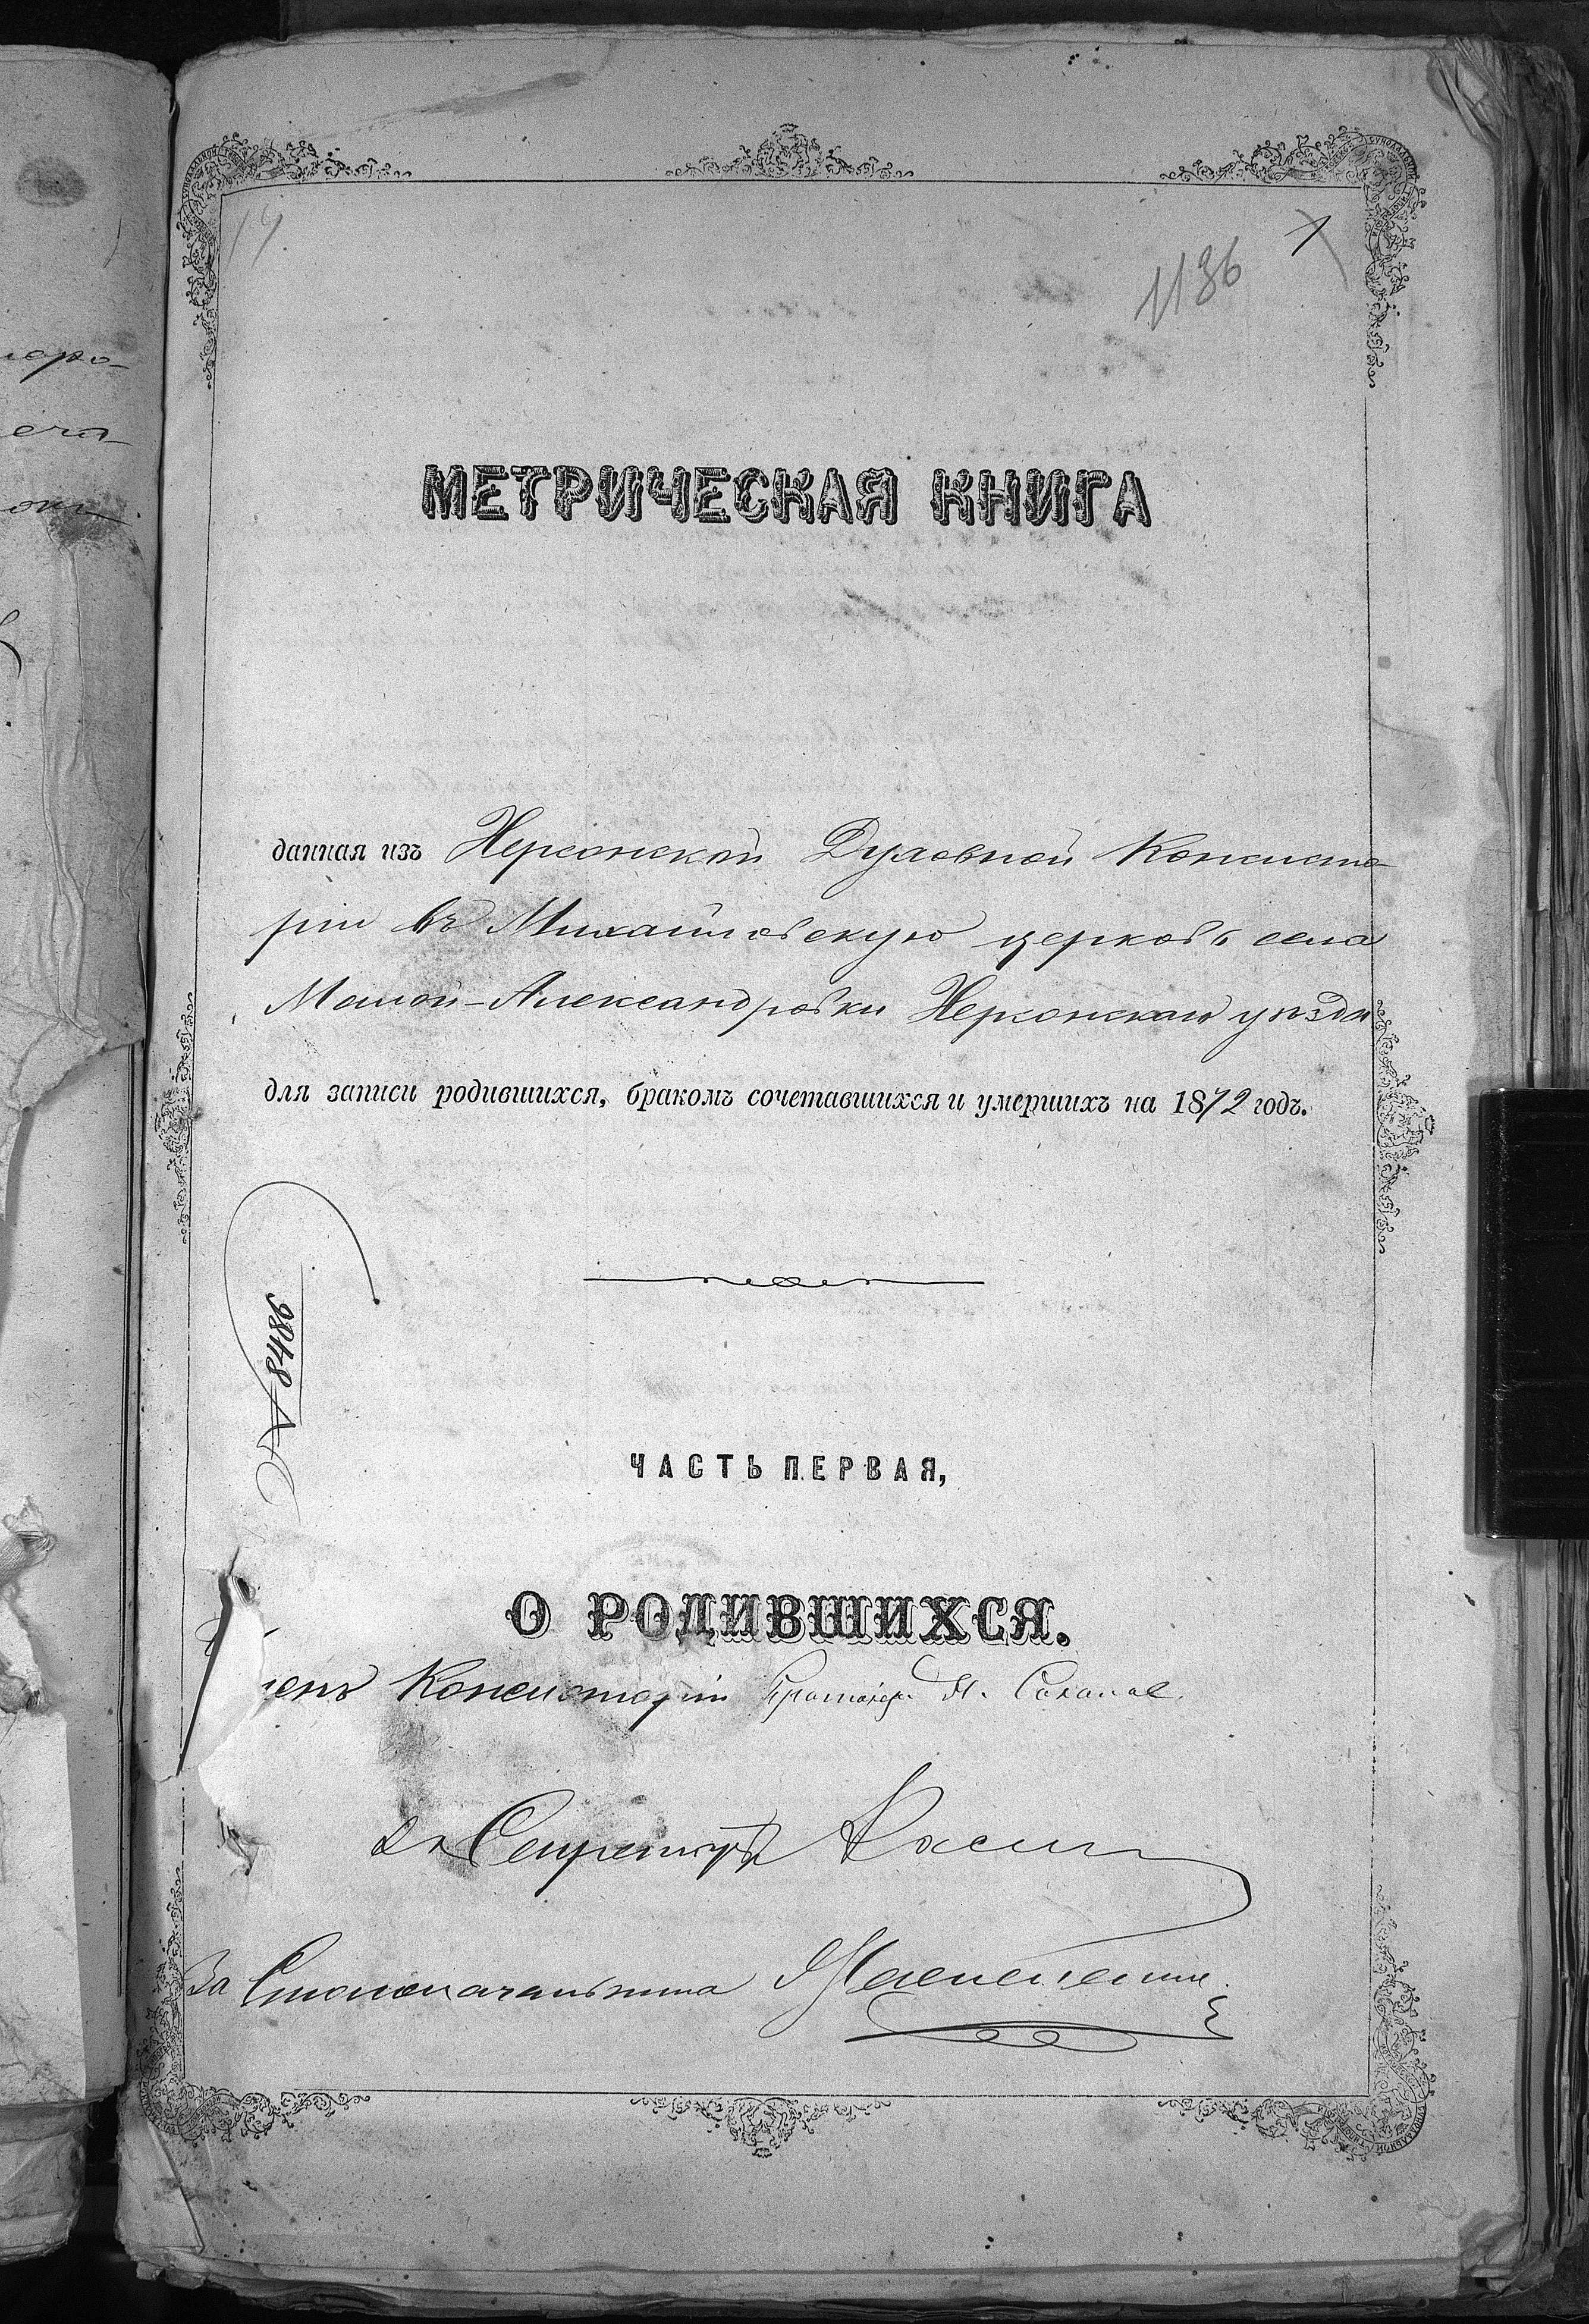 1
1136
14
МЕТРИЧЕСКАЯ КНИГА
данная изъ Херсонской Духовной Консисто-
ріи въ Михайловскую церковь села
Малой-Александровки Херсонскаго уѣзда
для записи родившихся, бракомъ сочетавшихся и умершихъ на 1872 годъ.
№ 8486
ЧАСТЬ ПЕРВАЯ,
О РОДИВШИХСЯ.
ленъ Консисторіи
Секретарь
За Столоначальника